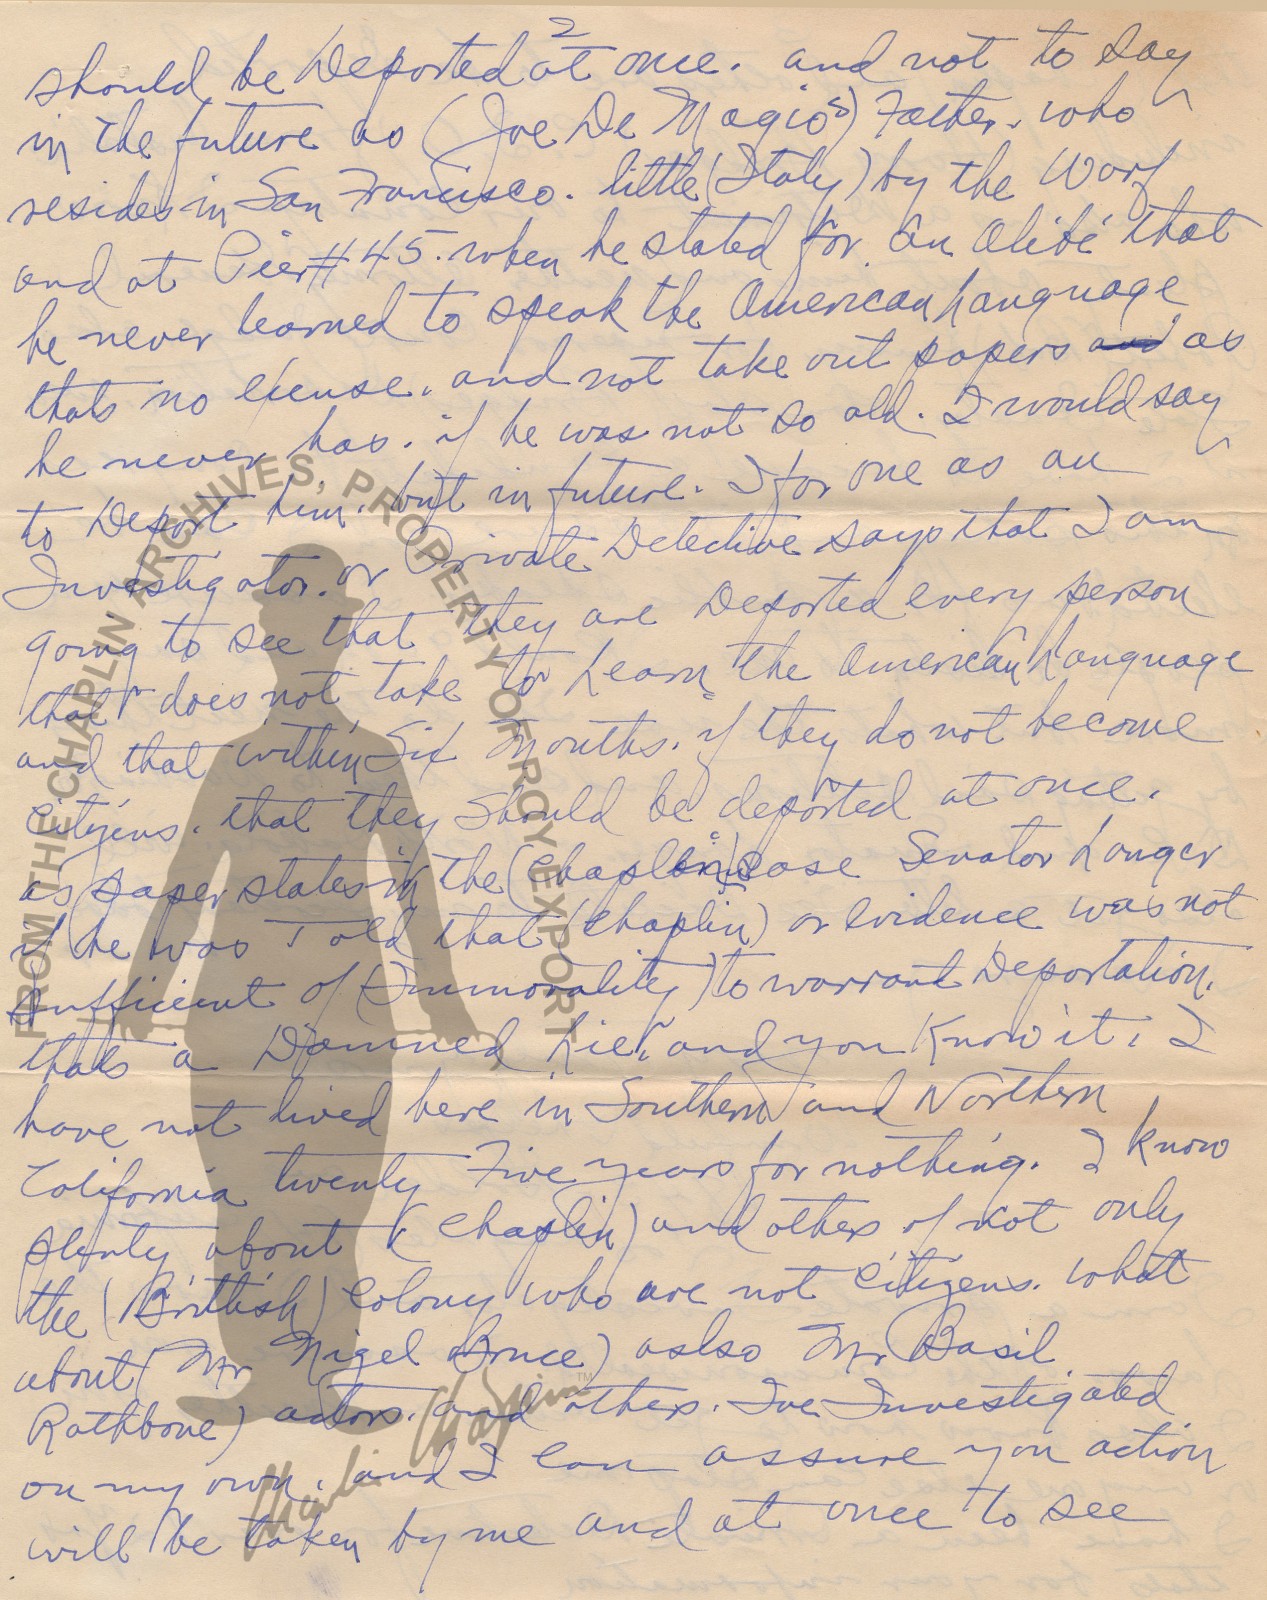 2
should be Deported at once. and not to say
in the future as (Joe De Magio's) Father. who
resides in San Francisco. little (Italy) by the Warf
and at Pier # 45. when he stated for an Alibi that
he never learned to speak the American Language
thats no excuse. and not take out papers and as
he never has. if he was not so old. I would say
to Deport him. but in future. I for one as an
Investigator. or Private Detective says that I am
going to see that they are Deported every person
that does not take to Learn the American Language
and that within Six Months. if they do not become
Citizens. that they should be deported at once.
as paper states in the (Chaplin) Case Senator Langer
if he was Told that (Chaplin) or Evidence was not
sufficient of (Immorality) to warrant Deportation.
thats a Damned Lie. and you Know it. I
have not lived here in Southern and Northern
California twenty Five years for nothing. I know
plenty about (Chaplin) and others of not only
the (Brittish) Colony who are not Citizens. what
about (Mr Nigel Bruce) aslso Mr Basil
Rathbone) actors. and others. I've Investigated
on my own. and I can assure you action
will be taken by me and at once to see
FROM THE CHAPLIN ARCHIVES, PROPERTY OF ROY EXPORT
Charlie Chaplin™